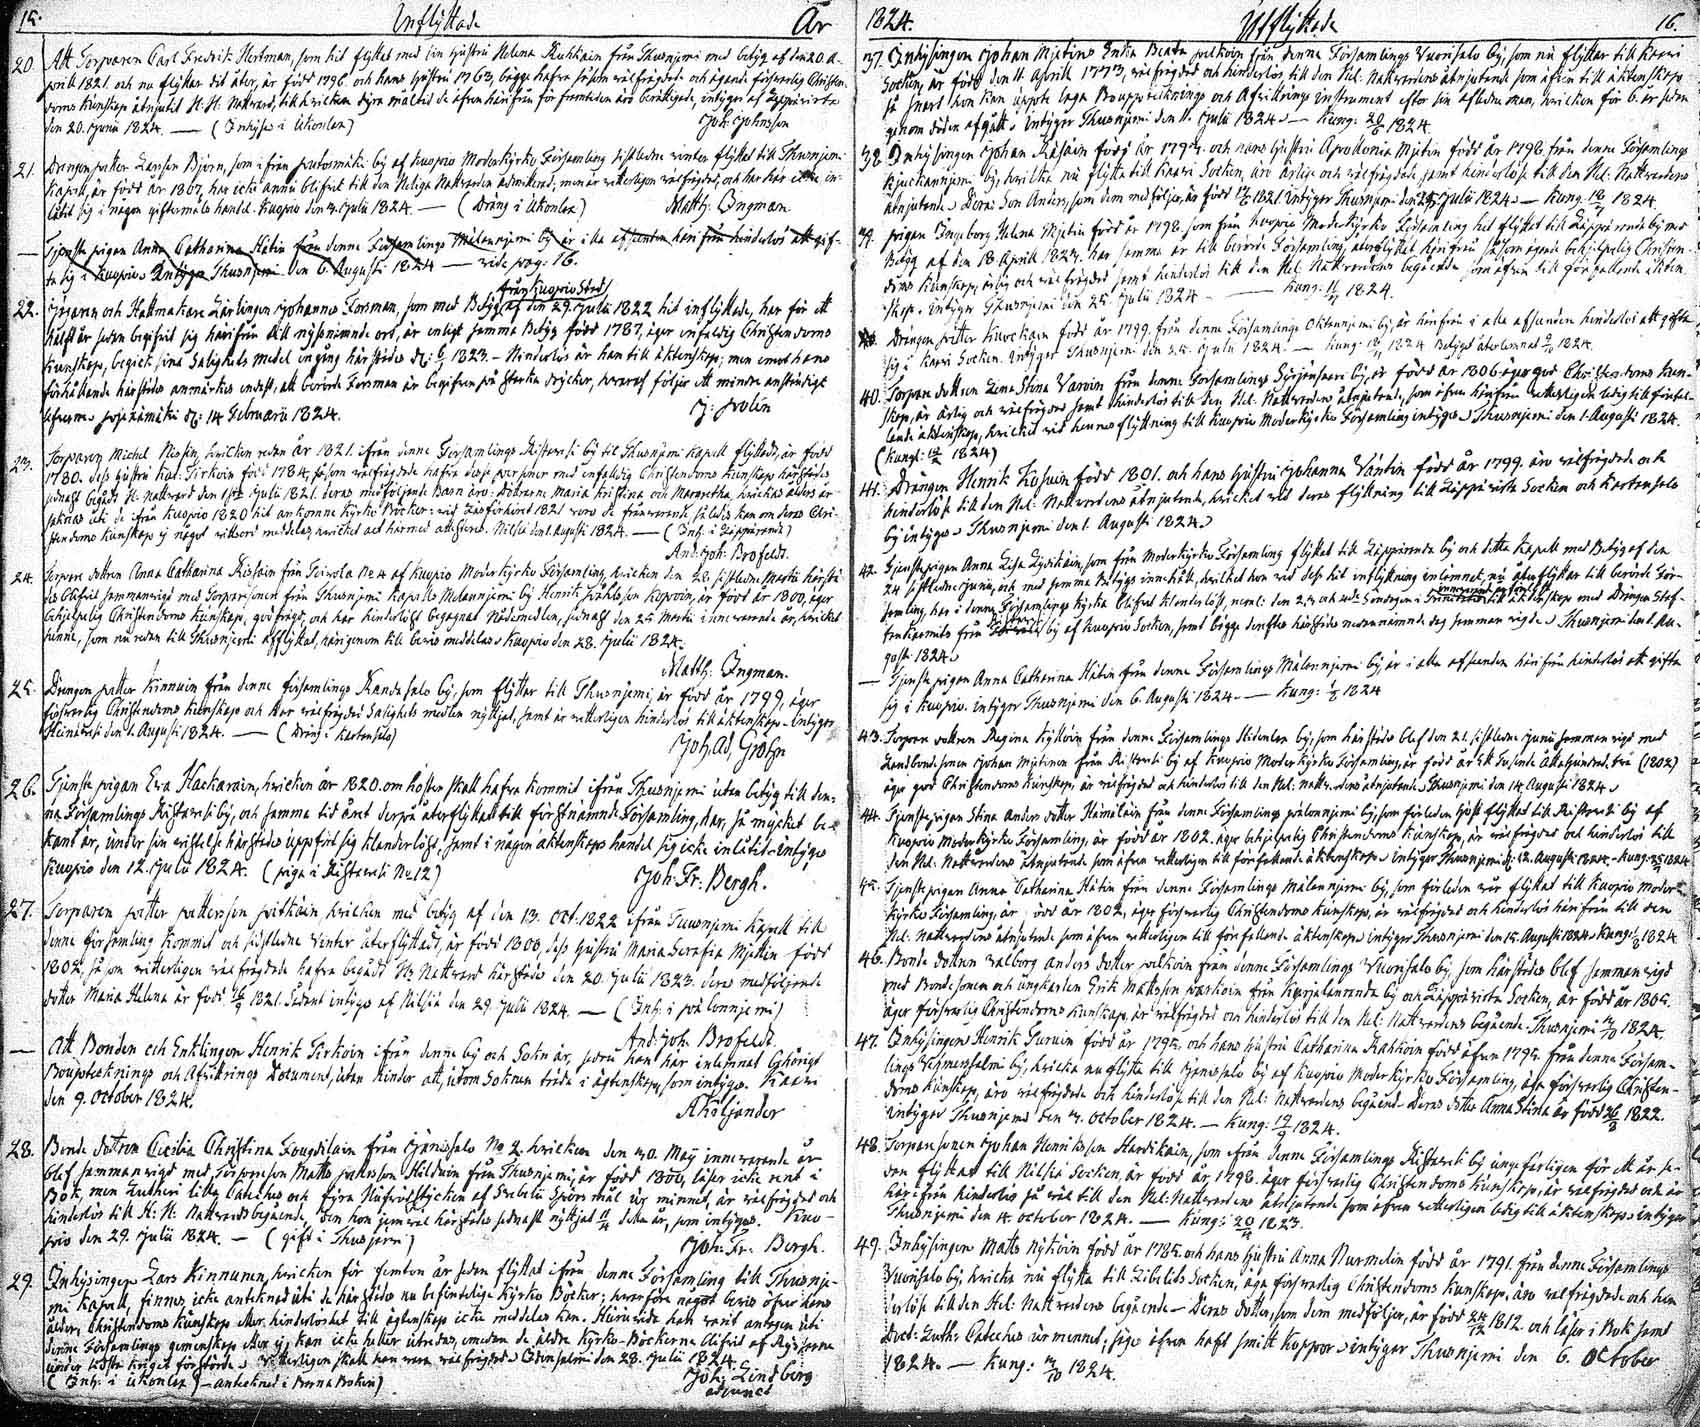 15. Inflyttade År
20. Att Torparen Carl Fredrik Hertman, som hit flyttat med sin hustru Helena från Thusnjemi med betyg af den 20. A-
prill 1821. och nu flyttar dit åter, är född 1796. och hans hustru 1763, bägge hafva såsom välfrägdade och ägande försvarlig Christen-
doms kunskap åtnjutit H. H. Nattvard, till hvilken dyra måltid de äfven härifrån för framtiden äro berättigade, intygar af Leppävirta
den 20. Junii 1824. — (Inhyses i Ukonlax) Joh: Johnsson
21. Drengen Petter Larsson Björn, som ifrån by af Kuopio Moderkyrko Församling sistledne vinter flyttat till Thusnjemi
Kapell, är född år 1807, har icke ännu blifvit till den Heliga Nattvarden admitterad, men är vitterligen välfrägdad, och har här icke in-
låtit sig i någon giftermåls handel. Kuopio den Julii 1824. — (Dräng i Ukonlax) Matth: Ingman.
— Tjenste pigan Anna Catharina Hätin från denna Församlings Mälannjemi by är i alla afseenden härifrån hinderlös att gif-
ta sig i Kuopio. Intygar Thusnjemi den 6. Augusti 1824 — vide pag: 16.
från Kuopio Stad
22. och Hattmakare Lärlingen Johannes Forsman, som med Betyg af den 29. Julii 1822 hit inflyttade, har för ett
hälft år sedan begifvit sig härifrån till nyssnämnde ort, är enligt samma Betyg född 1787, äger enfaldig Christendoms
kunskap, begick sina Salighets medel en gång härstädes d: 1823. — Hinderlös är han till äktenskap; men emot hans
förhållande härstädes anmärktes endast, att berörde Forsman är begifven på starka drycker, hvaraf följer ett mindre anständigt
lefverne. d: 14 Februarii 1824. J: Polén
23. Torparen Michel Nissin, hvilken redan år 1821. ifrån denne Församlings Ristavesi by til Thusnjemi Kapell flyttade, är född
1780. dess hustru Kai: Tirkoin född 1784, såsom välfrägdade hafva desse personer med enfaldig Christendoms kunskap härstädes
sednast begådt H. Nattvard den Julii 1821. deras medföljande Barn äro: Döttrarne Maria Kristina och Margretha, hvilkas ålders år
saknas uti de ifrån Kuopio 1820 hit ankomne Kyrko Böcker: vid Läsförhöret 1821 voro de frånvarande, således kan om deras Chri-
stendoms kunskap ej något vittsord meddelas, hvilket ock härmed attesteras. Nilsiä den 1 Augusti 1824. — (Inh: i Leppäranda)
And: Joh: Brofeldt.
24. Torpare dottren Anna Catharina Rissain från Toivola No 4 af Kuopio Moderkyrko Församling, hvilken den 28. sistledne Martii härstä-
des blifvit sammanvigd med Torparesonen från Thusnjemi Kapells Melannjemi by Henrik Påhlsson Kopoin, är född år 1800, äger
behjelplig Christendoms kunskap, god frägd, och har hinderlöst begagnat Nådemedlen, sednast den 25 Martii innevarande år, hvilket
henne, som nu redan till Thusnjemi afflyttat, härigenom till bevis meddelas. Kuopio den 28. Julii 1824.
Matth: Ingman.
25. Drengen Petter Kinnuin från denne församlings Kandasalo by, som flyttar till Thusnjemi, är född år 1799, äger
försvarlig Christendoms kunskap och Har välfrägdad Salighets medlen nyttjat, samt är vitterligen hinderlös till äktenskap. Intygar
Heinävesi den 1. Augusti 1824. — (Dräng i Kartensalo) Joh: Ad: Grahn
26. Tjenste pigan Eva Hackarain, hvilken år 1820. om hösten skall hafva kommit ifrån Thusnjemi utan betyg till den-
na Församlings Ristavesi by, och samma tid året derpå återflyttat till förstnämnde Församling, har, så mycket be-
kant är, under sin vistelse härstädes uppfört sig klanderlöst, samt i någon äktenskaps handel sig icke inlåtit. Intygas
Kuopio den 12. Julii 1824. (piga i Ristavesi No 12) Joh: Fr: Bergh.
27. Torparen Petter Pettersson Pitkäin hvilken med betyg af den 13. Oct. 1822 ifrån Tuusnjemi Kapell till
denne församling kommit och sistledne Vinter återflyttadt, är född 1800, dess hustru Maria Serafia Mjettin född
1802, så som vitterligen välfrägdade hafva begådt H. Nattvard härstädes den 20. Julii 1823. deras medföljande
dotter Maria Helena är född 1821. Sådant intygas af Nilsiä den 29. Julii 1824. — (Inh: i Pälonnjemi)
And: Joh: Brofeldt.
— Att Bonden och Enklingen Henrik Tirkoin ifrån denne by och Sokn är, sedan han här inlemnat behörigt
Bouptecknings och Afvittrings Document, utan hinder att, utom Soknen träda i ägtenskap, som intygas. Kaavi
den 9. October 1824. A Köljander
28. Bonde dottren Cecilia Christina Lougdilain från Jännessalo No 2. hvilken den 30. Maij innevarande år
blef sammanvigd med Torparesson Matts Pålsson Hilduin från Thusnjemi, är född 1800, läser icke rent i
Bok, men Lutheri lilla Cateches och fyra Hufvudstycken af Svebelii Spörsmål ur minnet, är välfrägdad och
hinderlös till H: H: Nattvards begående, den hon jemväl härstädes sednast nyttjat detta år, som intygas. Kuo-
pio den 29. Julii 1824. — (gift i Thusjemi) Joh: Fr: Bergh.
29. Inhysingen Lars Kinnunen, hvilken för femton år sedan flyttat ifrån denne Församling till Thusnje-
mi Kapell, finnes icke antecknad uti de härstädes nu befintelige Kyrko Böcker; hvarföre något bevis öfver hans
ålder, Christendoms kunskap eller hinderlöshet till ägtenskap icke meddelas kan. Huruvida han varit antagen uti
denne Församlings gemenskap eller ej, kan icke heller utredas, emedan de äldre Kyrko-Böckerna blifvit af Ryssarne
under sidsta kriget förstörda. Vitterligen skall han vara välfrägdad. Idensalmi den 28. Julii 1824.
(Inh: i Ukonlax) — antecknad i Barna Boken) Joh: Lindberg
adjunct
1824. Utflyttade 16.
37. Inhysingen Johan Mjetins Enka Beata Pelkoin från denne Församlings Vuorisalo by, som nu flyttar till Kaavi
Socken, är född den 11 Aprill 1773, välfrägdad och hinderlös till den Hel: Nattvardens åtnjutande som äfven till äktenskap
så snart hon kan uppte laga Bouppteckning och Afvittrings instrument efter sin aflednе man, hvilken för 6. år sedan
genom döden afgått. Intygar Thusnjemi den 11. Julii 1824. — Kung: 1824.
38. Inhysingen Johan Räsäin född år 179 och hans hustru Apollonia Mjetin född år 1796 från denne Församlings
by, hvilka nu flytta till Kaavi Socken, äro ärlige och välfrägdade samt hinderlöse till den Hel: Nattvardens
åtnjutande. Deras Son Anders, som dem medföljer, är född 1821. Intygar Thusnjemi den 24 Julii 1824. — Kung: 1824.
39. Pigan Ingeborg Helena Mjetin född år 1798. som från Kuopio Moderkyrko Församling hit flyttat till Leppäranda by med
Betyg af den 18 Aprill 1823. har samma år till berörde Församling återflyttat härifrån såsom ägande behjelpelig Christen-
doms kunskap, ärlig och välfrägdad samt hinderlös till den Hel: Nattvardens begående som äfven till förefallande äkten-
skap. Intygar Thusnjemi den 25. Julii 1824. — Kung: 1824.
Drängen Petter från denne Församlings Oktannjemi by, är härifrån i alla afseenden hinderlös att gifta
sig i Kaavi Socken. Intygar Thusnjemi den Julii 1824. — Kung: 1824 Betyget återlemnat 1824.
40. Torpare dottren Lena Stina Varoin från denne Församlings Syrjensaari by, är född år 1806. äger god Christendoms kun-
skap, är ärlig och välfrägdad samt hinderlös till den Hel: Nattvardens åtnjutande, som äfven härifrån vitterligen ledig till förefal-
lande äktenskap, hvilket vid hennes flyttning till Kuopio Moderkyrko Församling intygas. Thusnjemi den 1. Augusti 1824.
(Kungl: 1824)
41. Drängen Henrik Kosuin född 1801. och hans hustru Johanna Väntin född år 1799. äro välfrägdade och
hinderlöse till den Hel: Nattvardens åtnjutande, hvilket vid deras flyttning till Leppävirta Socken och Kartensalo
by intygas. Thusnjemi den 1. Augusti 1824.
42. Tjenstepigan Anna Lisa Lyytikäin, som från Moderkyrko Församling flyttat till Leppäranda by och detta Kapell med Betyg af den
24 sistledne Junii, och med samma Betygs innehåll, hvilket hon vid dess hit inflyttning inlemnat, nu återflyttar till berörde För-
samling, har i denne Församlings kyrka blifvit klanderlöst, neml: den 2. och Söndagen i till äktenskap med Drängen Stef-
fan från by af Kuopio Socken, samt bägge derefter härstädes nedannämnde dag samman vigde. Thusnjemi den 1. Au-
gusti 1824.
— Tjenste pigan Anna Catharina Hätin från denne Församlings Mälannjemi by, är i alla afseenden härifrån hinderlös att gifta
sig i Kuopio. Intygar Thusnjemi den 6. Augusti 1824. — Kung: 1824
43. Torpare dottren Regina Kyllöin från denne Församlings Hidenlax by, som härstädes blef den 21. sistledne Junii samman vigd med
Landbondesonen Johan Mjetinen från Ristavesi by af Kuopio Moderkyrko Församling, är född år Ett Tusende Åttahundrade två (1802)
äger god Christendoms kunskap, är välfrägdad och hinderlös till den Hel: Nattvardens åtnjutande. Thusnjemi den 14 Augusti 1824.
44. Tjenstepigan Stina Anders dotter Hämäläin från denne Församlings Pälonnjemi by, som förleden höst flyttat till Ristavesi by af
Kuopio Moderkyrko Församling, är född år 1802. äger behjelpelig Christendoms kunskap, är välfrägdad och hinderlös till
den Hel: Nattvardens åtnjutande som äfven vitterligen till förefallande äktenskap. Intygar Thusnjemi d: 12. Augusti 1824. — Kung: 1824
45. Tjenste pigan Anna Catharina Hätin från denne Församlings Mälannjemi by, som förleden vår flyttat till Kuopio Moder-
kyrko Församling, är född år 1802, äger försvarlig Christendoms kunskap, är välfrägdad och hinderlös härifrån till den
Hel: Nattvardens åtnjutande som äfven vitterligen till förefallande äktenskap. intygar Thusnjemi den 15. Augusti 1824. Kung: 1824
46. Bonde dottren Valborg Anders dotter Pelkoin från denne Församlings Vuorisalo by, som härstädes blef samman vigd
med Bondesonen och ungkarlen Erik Mattsson från Karjalanranda by och Leppävirta Socken, är född år 1805.
äger försvarlig Christendoms kunskap, är välfrägdad och hinderlös till den Hel: Nattvardens begående. Thusnjemi 1824.
47. Inhysingen Henrik Turuin född år 1795. och hans hustru Catharina Kahkoin född äfven 1795. från denne Försam-
lings Vehmersalmi by, hvilka nu flytta till Jännessalo by af Kuopio Moderkyrko Församling, äga försvarlig Christen-
doms kunskap, äro välfrägdade och hinderlöse till den Hel: Nattvardens begående. Deras dotter Anna Stina är född 1822.
Intygar Thusnjemi den October 1824. — Kung: 1824.
48. Torparesonen Johan Henriksson Hardikain, som ifrån denne Församlings Ristavesi by ungefärligen för ett år se-
dan flyttat till Nilsiä Socken, är född år 1798. äger försvarlig Christendoms kunskap, är välfrägdad och är
härifrån hinderlös så väl till den Hel: Nattvardens åtnjutande som äfven vitterligen ledig till äktenskap. intygar
Thusnjemi den 4. October 1824. — Kung: 1823.
49. Inhysingen Matts Nykoin född år 1785. och hans hustru Anna Nurmelin född år 1791. från denne Församlings
Vuorisalo by, hvilka nu flytta till Libelits Socken, äga försvarlig Christendoms kunskap, äro välfrägdade och hin-
derlöse till den Hel: Nattvardens begående. — Deras dotter, som dem medföljer, är född 1812. och läser i Bok samt
Doct: Luth: Cateches ur minnet, säges äfven haft smitt koppor. intygar Thusnjemi den 6. October
1824. — Kung: 1824.